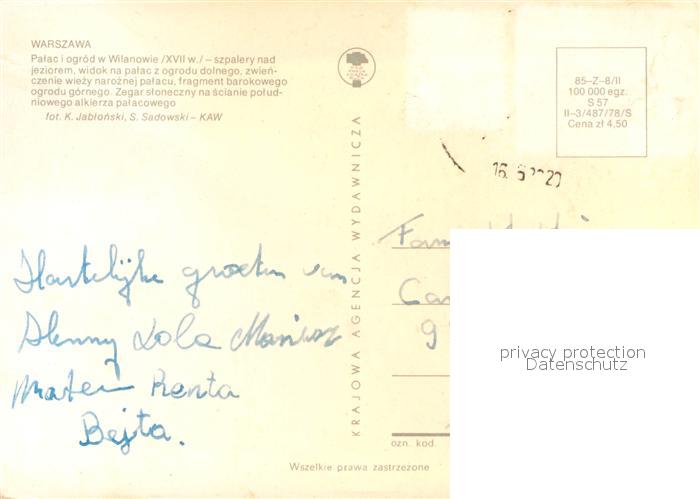 WARSZAWA
Pałac i ogród w Wilanowie /XVII w./ – szpalery nad
jeziorem, widok na pałac z ogrodu dolnego, zwień-
czenie wieży narożnej pałacu, fragment barokowego
ogrodu górnego. Zegar słoneczny na ścianie połud-
niowego alkierza pałacowego
fot. K. Jabłoński, S. Sadowski – KAW
KRAJOWA AGENCJA WYDAWNICZA
85–Z–8/II
100 000 egz.
S 57
II–3/487/78/S
Cena zł 4,50
Hartelijke groeten van
Lola Mariusz
Renta
Bejta.
Fam
Ca
9
privacy protection
Datenschutz
ozn. kod.
Wszelkie prawa zastrzeżone